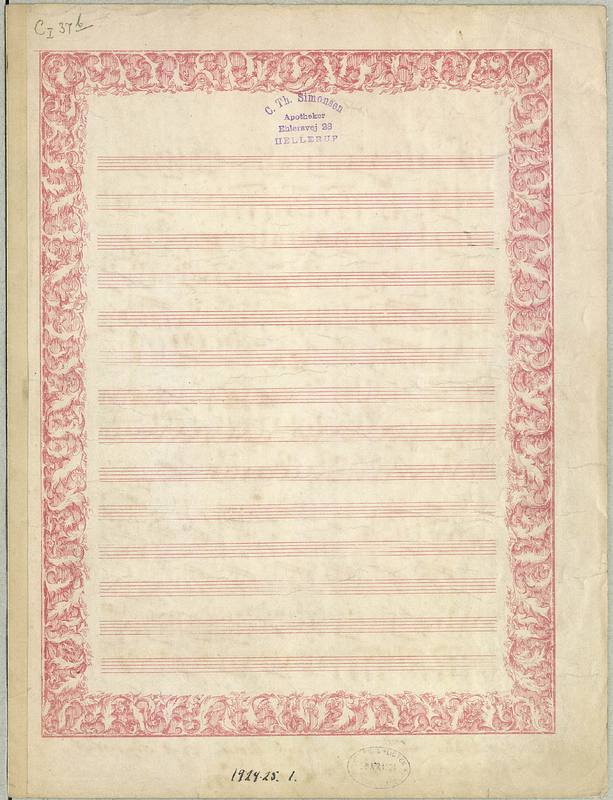 C I 37 b
C. Th. Simonsen
Apotheker
Ehlersvej 23
HELLERUP
1924-25. 1.